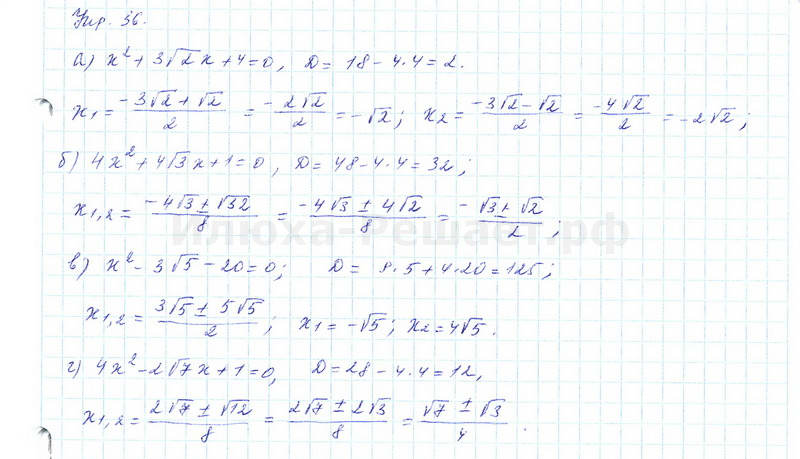 Упр. 36.
а) x² + 3√2x + 4 = 0, D = 18 - 4·4 = 2.
x₁ = (-3√2 + √2)/2 = (-2√2)/2 = -√2; x₂ = (-3√2 - √2)/2 = (-4√2)/2 = -2√2;
б) 4x² + 4√3x + 1 = 0, D = 48 - 4·4 = 32;
x₁,₂ = (-4√3 ± √32)/8 = (-4√3 ± 4√2)/8 = (-√3 ± √2)/2;
Илюха-Решает.рф
в) x² - 3√5 - 20 = 0; D = 9·5 + 4·20 = 125;
x₁,₂ = (3√5 ± 5√5)/2; x₁ = -√5; x₂ = 4√5.
г) 4x² - 2√7x + 1 = 0, D = 28 - 4·4 = 12,
x₁,₂ = (2√7 ± √12)/8 = (2√7 ± 2√3)/8 = (√7 ± √3)/4.